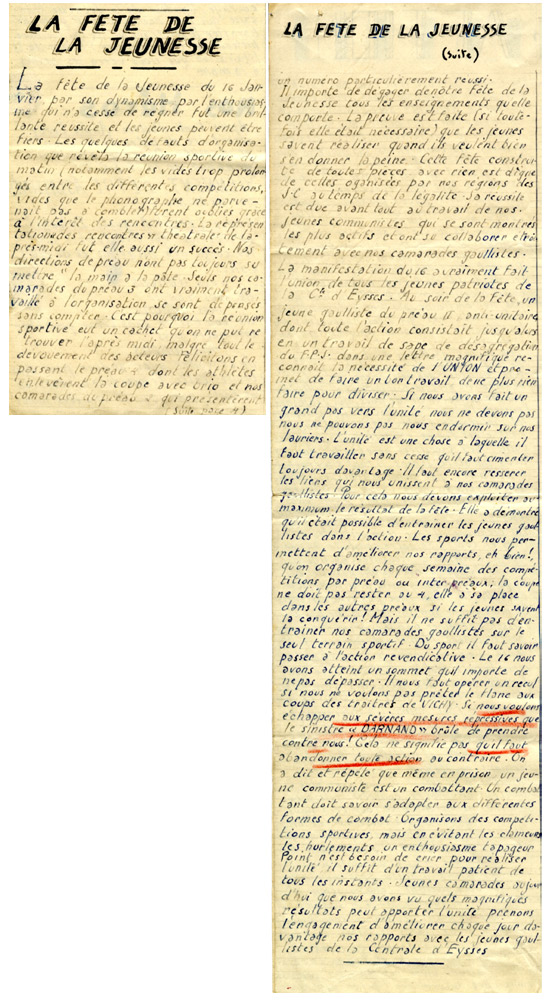 LA FETE DE
LA JEUNESSE
La fête de la Jeunesse du 16 Jan-
vier, par son dynamisme par l'enthousias-
me qui n'a cessé de régner fut une bril-
lante réussite et les jeunes peuvent être
fiers. Les quelques défauts d'organisa-
tion que révéla la réunion sportive du
matin (notamment les vides trop prolon-
gés entre les différentes compétitions,
vides que le phonographe ne parve-
nait pas à combler) furent oubliés grâce
à l'intérêt des rencontres. La représen-
tation des rencontres "théâtrale" de l'a-
près-midi fut elle aussi un succès. Nos
directions de préau n'ont pas toujours su
mettre "la main à la pâte. Seuls nos ca-
marades du préau 3 ont vraiment tra-
vaillé à l'organisation, se sont dépensés
sans compter. C'est pourquoi la réunion
sportive eut un cachet qu'on ne put re-
trouver l'après midi, malgré tout le
dévouement des acteurs. Félicitons en
passant le préau 4 dont les athlètes
enlevèrent la coupe avec brio et nos
camarades du préau 2 qui présentèrent
(suite page 4)
LA FETE DE LA JEUNESSE
(suite)
un numéro particulièrement réussi.
Il importe de dégager de notre Fête de la
Jeunesse tous les enseignements qu'elle
comporte. La preuve est faite (si toute-
fois elle était nécessaire) que les jeunes
savent réaliser quand ils veulent bien
s'en donner la peine. Cette fête construi-
te de toutes pièces avec rien est digne
de celles organisées par nos régions des
J.C au temps de la légalité. Sa réussite
est due avant tout au travail de nos
jeunes communistes qui se sont montrés
les plus actifs et ont su collaborer étroi-
tement avec nos camarades gaullistes.
La manifestation du 16 a vraiment fait
l'union de tous les jeunes patriotes de
la Cle d'Eysses. Au soir de la Fête, un
jeune gaulliste du préau II, anti-unitaire
dont toute l'action consistait jusqu'alors
en un travail de sape de désagrégation
du F.P.J. dans une lettre magnifique re-
connaît la nécessité de l'UNION et pro-
met de faire un bon travail de ne plus rien
faire pour diviser. Si nous avons fait un
grand pas vers l'unité nous ne devons pas
nous ne pouvons pas nous endormir sur nos
lauriers. L'unité est une chose à laquelle il
faut travailler sans cesse qu'il faut cimenter
toujours davantage. Il faut encore resserer
les liens qui nous unissent à nos camarades
gaullistes. Pour cela nous devons exploiter au
maximum le résultat de la fête. Elle a démontré
qu'il était possible d'entraîner les jeunes gaul-
listes dans l'action. Les sports nous per-
mettent d'améliorer nos rapports, eh bien!,
qu'on organise chaque semaine des compé-
titions par préau ou inter préaux, la coupe
ne doit pas rester au 4, elle a sa place
dans les autres préaux si les jeunes savent
la conquérir! Mais il ne suffit pas d'en-
trainer nos camarades gaullistes sur le
seul terrain sportif. Du sport il faut savoir
passer à l'action revendicative. Le 16 nous
avons atteint un sommet qu'il importe de
ne pas dépasser. Il nous faut opérer un recul
si nous ne voulons pas prêter le flanc aux
coups des traîtres de VICHY. Si nous voulons
échapper aux sévères mesures répressives que
le sinistre "DARNAND" brûle de prendre
contre nous! Cela ne signifie pas qu'il faut
abandonner toute action au contraire. On
a dit et répété que même en prison, un jeu-
ne communiste est un combattant. Un combat-
tant doit savoir s'adapter aux différentes
formes de combat. Organisons des compéti-
tions sportives, mais en évitant les clameurs
les hurlements, un enthousiasme tapageur
Point n'est besoin de crier pour réaliser
l'unité il suffit d'un travail patient de
tous les instants. Jeunes camarades aujour
d'hui que nous avons vu quels magnifiques
résultats peut apporter l'unité prenons
l'engagement d'améliorer chaque jour da-
vantage nos rapports avec les jeunes gaul-
listes de la Centrale d'Eysses